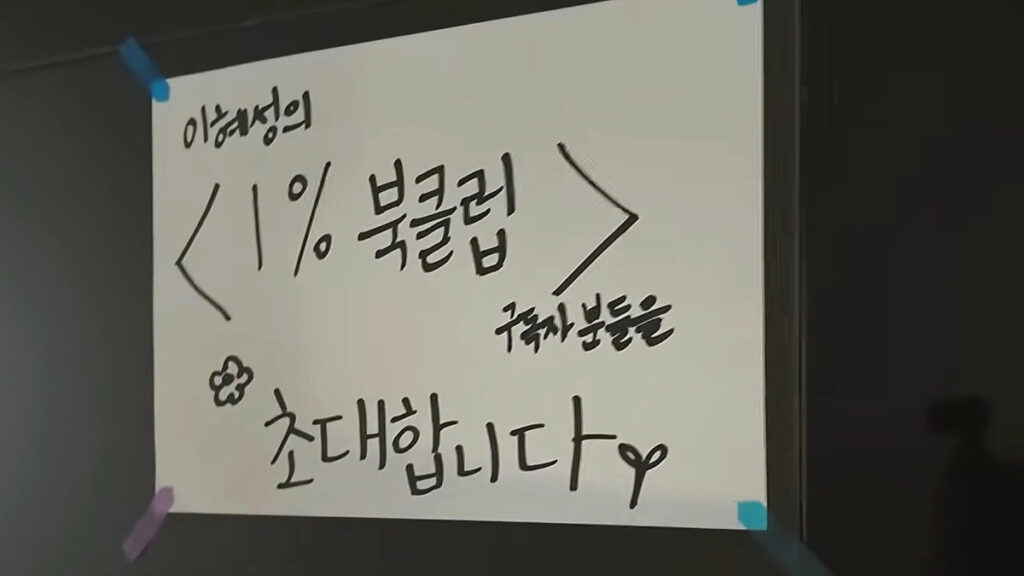 이혜성의
<1% 북클럽>
구독자 분들을
초대합니다